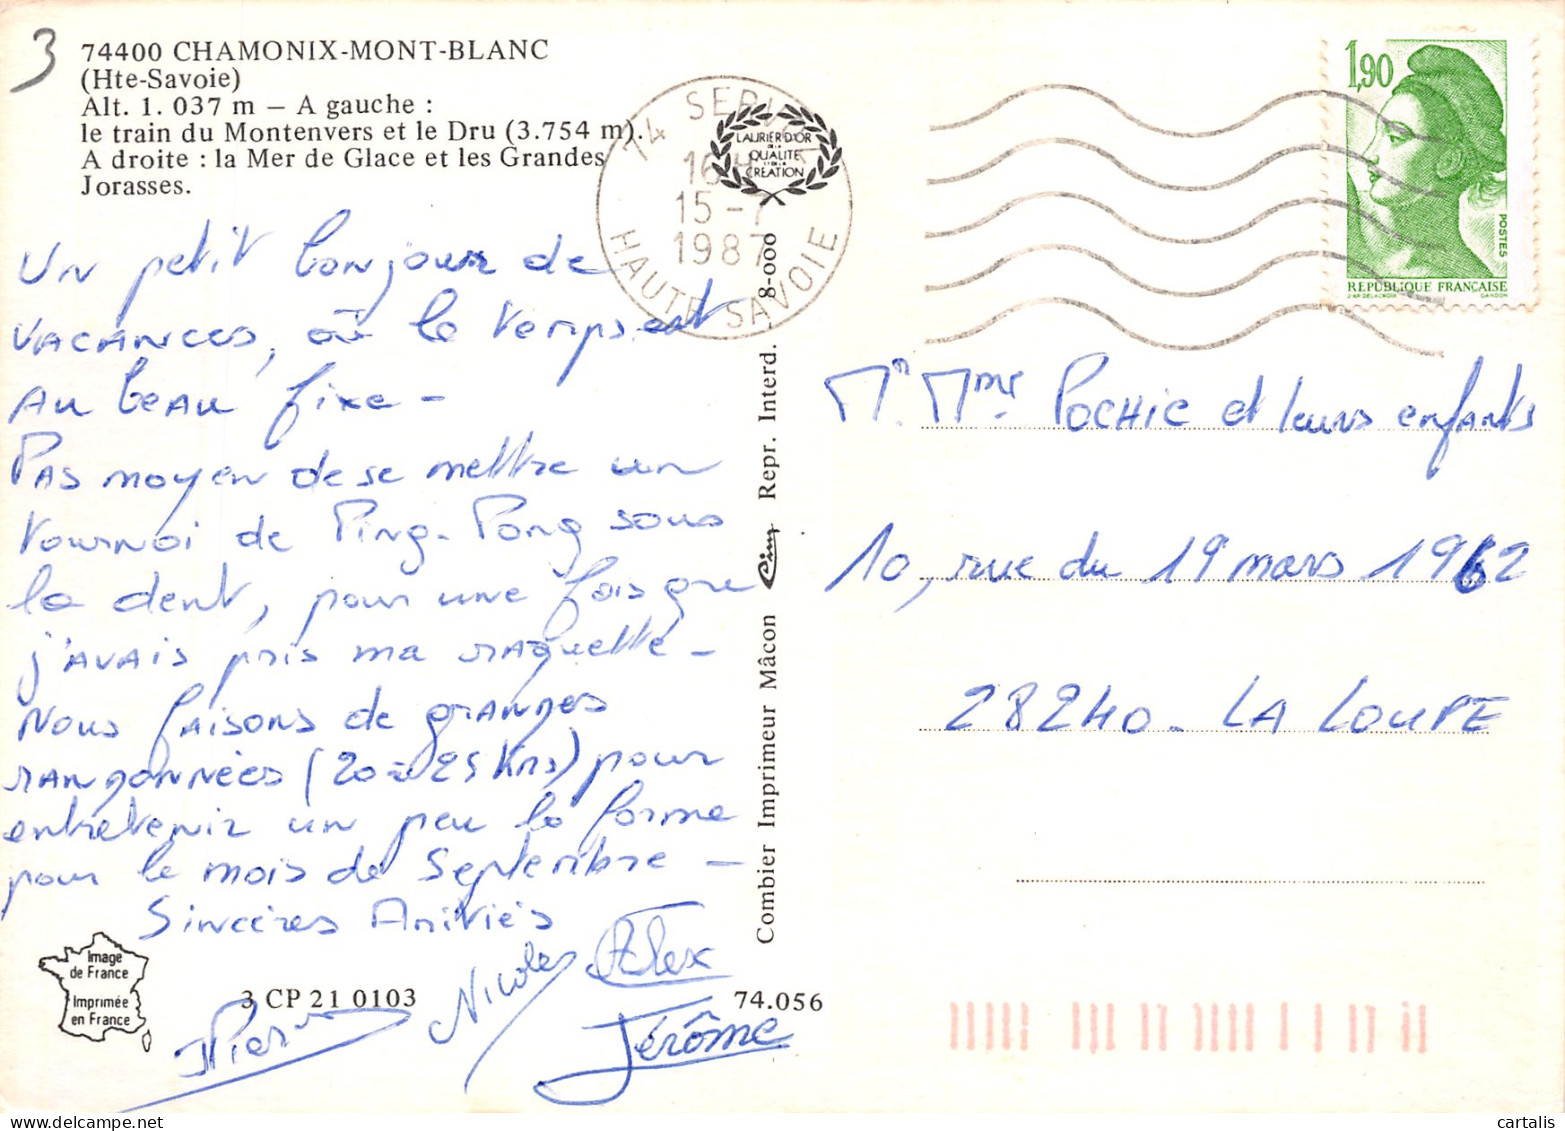 3
74400 CHAMONIX-MONT-BLANC
(Hte-Savoie)
Alt. 1. 037 m – A gauche :
le train du Montenvers et le Dru (3.754 m).
A droite : la Mer de Glace et les Grandes
Jorasses.
Un petit bonjour de
vacances, où le temps est
au beau fixe -
Pas moyen de se mettre un
tournoi de Ping-Pong sous
la dent, pour une fois que
j'avais pris ma raquette -
Nous faisons de grandes
randonnées (20 à 25 Kms) pour
entretenir un peu la forme
pour le mois de Septembre -
Sincères Amitiés
Nicolas
Alex
Jérôme
Image
de France
Imprimée
en France
3 CP 21 0103
74.056
Combier Imprimeur Mâcon Cim Repr. Interd. 8-000
LAURIER D'OR
DE LA
QUALITÉ
ET DE LA
CRÉATION
74 SERVOZ
16 H
15 -7
1987
HAUTE SAVOIE
1,90
POSTES
RÉPUBLIQUE FRANÇAISE
D'AP. DELACROIX GANDON
Mr. Mme POCHIC et leurs enfants
10, rue du 19 mars 1962
28240 - LA LOUPE
cartalis | delcampe.net